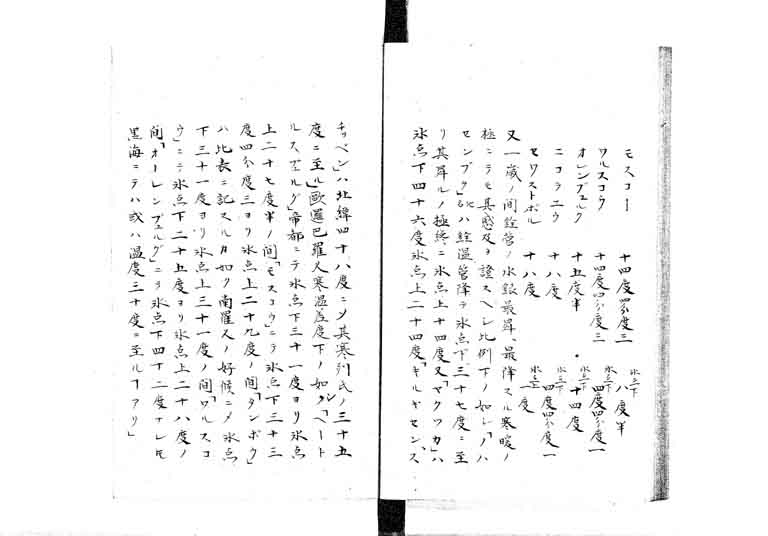 モスコー 十四度四分度三 氷点下八度半
ワルスコウ 十四度四分度三 氷点下四度四分度一
オレンブュルク 十五度半 氷点下十四度
ニコラニウ 十八度 氷点下四度四分度一
セワストポル 十八度 氷点上二度
又一歳ノ間詮管ノ水銀最昇、最降スル寒暖ノ
極ニテモ其感及ヲ證スヘシ比例下ノ如シ「ノハ
センブク」ハ銓温管降テ氷点下三十七度ニ至
リ其昇ルノ極終ニ氷点上十四度又「ヤクツカ」ハ
氷点下四十六度氷点上二十四度「キルギセンス
チッペン」ハ北緯四十八度ニメ其寒列氏ノ三十五
度ニ至ル」歐邏巴羅叉寒温差度下ノ如シ「ペート
ルスビュルグ」帝都ニテ氷点下三十一度ヨリ氷点
上二十七度半ノ間「モスコウ」ニテ氷点下三十三
度四分度三ヨリ氷点上二十九度ノ間「タンボウ」
ハ比表ニ記スルカ如ク南羅叉ノ好候ニメ氷点
下三十一度ヨリ氷点上三十一度ノ間「ワルスコ
ウ」ニテ氷点下二十五度ヨリ氷点上二十八度ノ
間「オーレンブュルグ」ニテ氷点下四十二度ナレモ
黒海ニテハ或ハ温度三十度ニ至ルヿアリ」